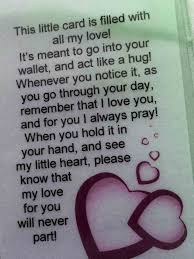 This little card is filled with
all my love!
It's meant to go into your
wallet, and act like a hug!
Whenever you notice it, as
you go through your day,
remember that I love you,
and for you I always pray!
When you hold it in
your hand, and see
my little heart, please
know that
my love
for you
will never
part!